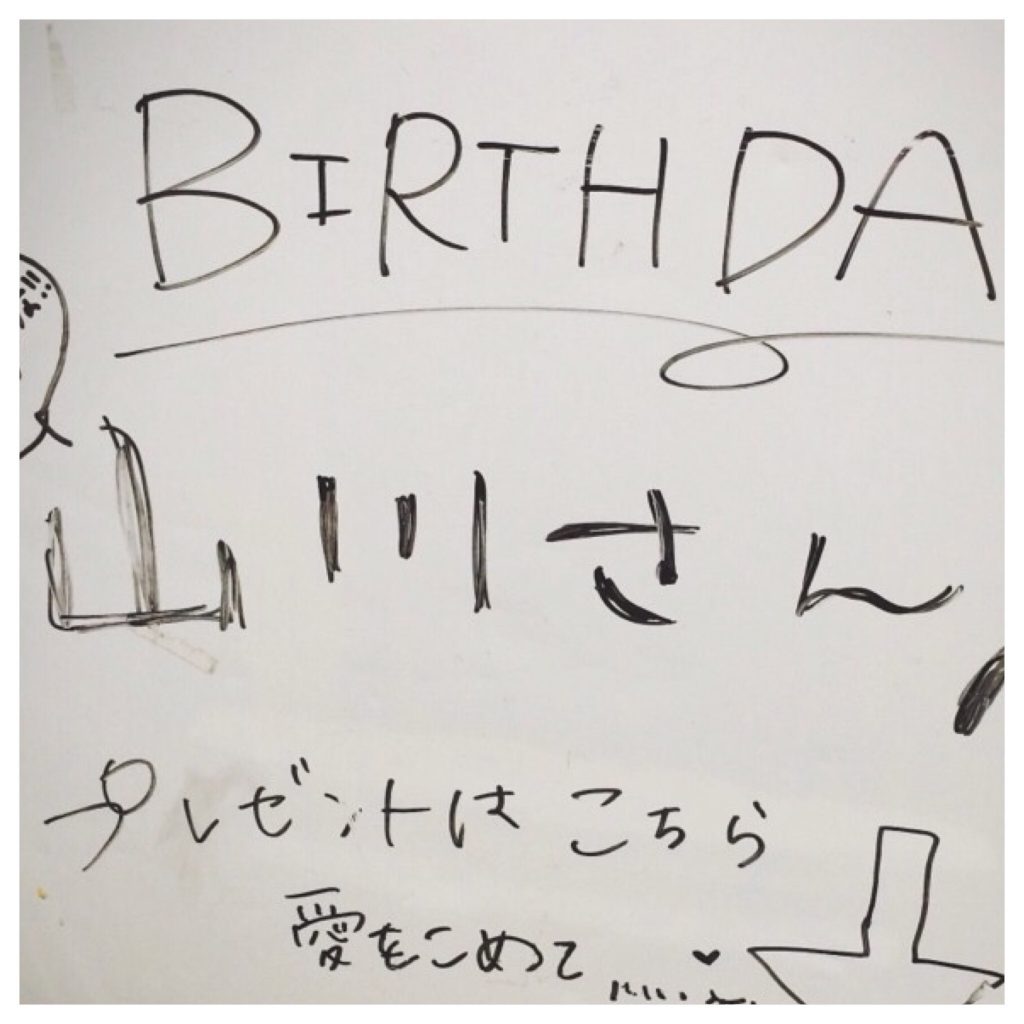 BIRTHDA
山川さん
プレゼントは こちら
愛をこめて